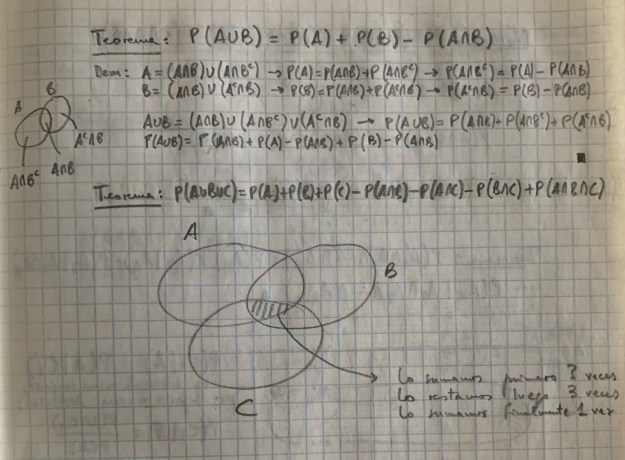 Teorema: P(A∪B) = P(A) + P(B) - P(A∩B)
Dem: A = (A∩B)∪(A∩Bᶜ) → P(A)=P(A∩B)+P(A∩Bᶜ) → P(A∩Bᶜ) = P(A) - P(A∩B)
B = (A∩B)∪(Aᶜ∩B) → P(B)=P(A∩B)+P(Aᶜ∩B) → P(Aᶜ∩B) = P(B) - P(A∩B)
A B
Aᶜ∩B
A∩Bᶜ A∩B
A∪B = (A∩B)∪(A∩Bᶜ)∪(Aᶜ∩B) → P(A∪B) = P(A∩B)+P(A∩Bᶜ)+P(Aᶜ∩B)
P(A∪B) = P(A∩B)+P(A)-P(A∩B)+P(B)-P(A∩B)
Teorema: P(A∪B∪C)=P(A)+P(B)+P(C)-P(A∩B)-P(A∩C)-P(B∩C)+P(A∩B∩C)
A
B
C
Lo sumamos primero 3 veces
Lo restamos luego 3 veces
Lo sumamos finalmente 1 vez